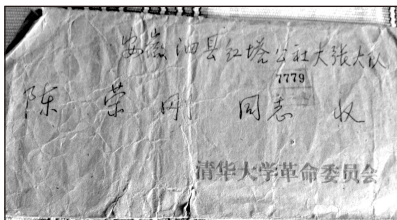 安徽泗县红塔公社大张大队
7779
陈荣刚 同志 收
清华大学革命委员会